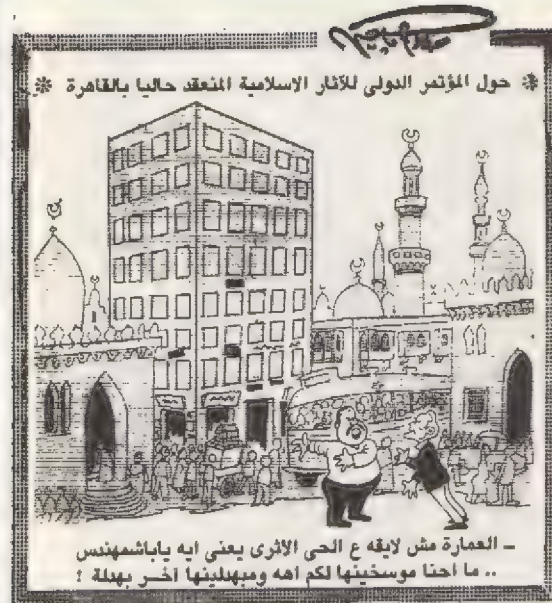 ❋ حول المؤتمر الدولى للآثار الاسلامية المنعقد حاليا بالقاهرة ❋
ــ العمارة مش لايقه ع الحى الاثرى يعنى ايه ياباشمهندس
.. ما احنا موسخينها لكم اهه ومبهدلينها آخـر بهدلة !